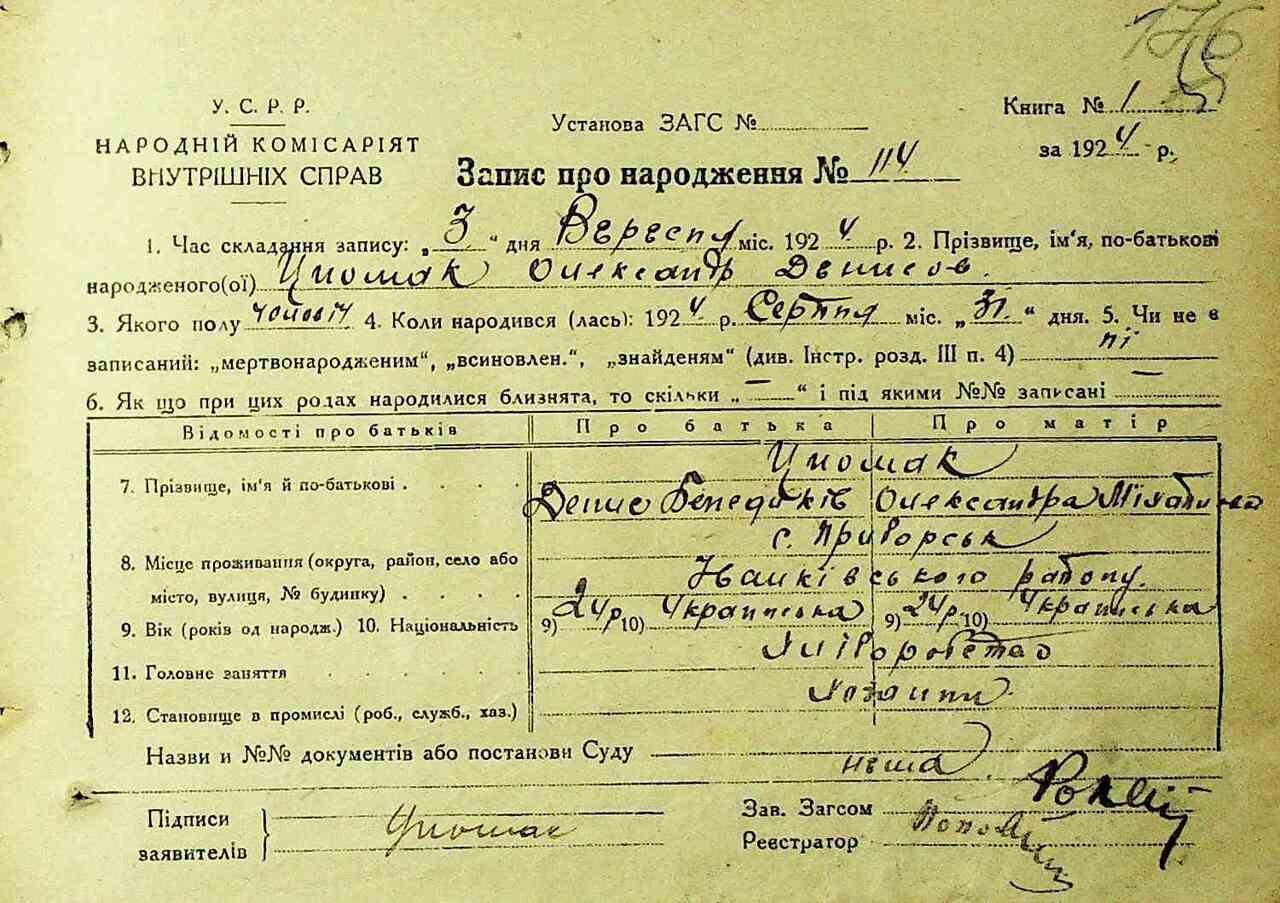 176
У. С. Р. Р.
НАРОДНІЙ КОМІСАРІЯТ
ВНУТРІШНІХ СПРАВ
Установа ЗАГС №
Книга № 1
за 1924 р.
Запис про народження № 114
1. Час складання запису: „3“ дня Вересня міс. 1924 р. 2. Прізвище, ім'я, по-батькові
народженого(ої) Олександр Денисов.
3. Якого полу чоловіч 4. Коли народився (лась): 1924 р. Серпня міс. „31“ дня. 5. Чи не є
записаний: „мертвонародженим“, „всиновлен.“, „знайденям“ (див. Інстр. розд. III п. 4) ні
6. Як що при цих родах народилися близнята, то скільки „—“ і під якими №№ записані —
Відомості про батьків Про батька Про матір
7. Прізвище, ім'я й по-батькові
Денис Бенедиків Олександра
8. Місце проживання (округа, район, село або
місто, вулиця, № будинку)
с. Приворськ
Іванківського району.
9. Вік (років од народж.) 10. Національність 9) 24 р. 10) Українська 9) 24 р. 10) Українська
11. Головне заняття Хліборобство
12. Становище в промислі (роб., служб., хаз.) Хазаїни
Назви и №№ документів або постанови Суду нема.
Підписи
заявителів
Зав. Загсом
Реєстратор